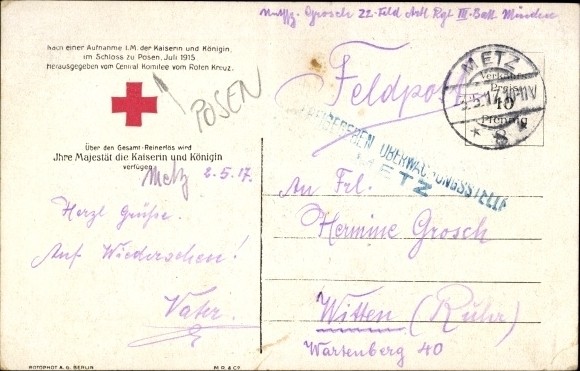 Nach einer Aufnahme I.M. der Kaiserin und Königin
im Schloss zu Posen, Juli 1915
Herausgegeben vom Central Komitee vom Roten Kreuz.
POSEN
Über den Gesamt-Reinerlös wird
Jhre Majestät die Kaiserin und Königin
verfügen
Metz 2.5.17.
Herzl Grüße.
Auf Wiedersehen!
Vater.
ROTOPHOT A.G. BERLIN
M.R. & Co
Grosch 22. Feld Artl Rgt III. Batt. Münden
Feldpost
METZ
Verkaufs-
Preis
10
Pfennig
* 8 *
FREIGEGEBEN ÜBERWACHUNGSSTELLE
METZ
An Frl.
Hermine Grosch
Witten (Ruhr)
Wartenberg 40